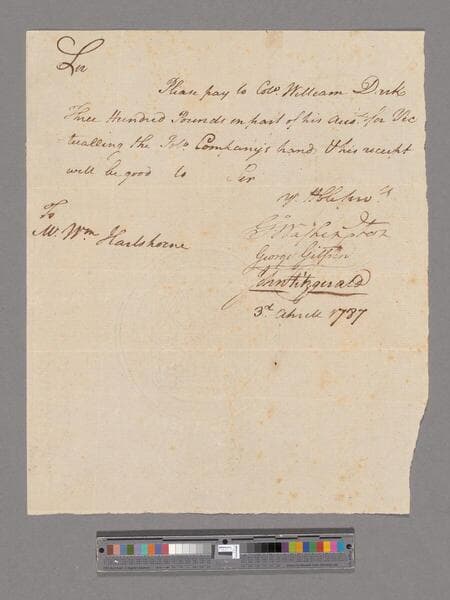 Sir
Please pay to Colo. William Dark
Three Hundred Pounds in part of his Accot. for Vic
tualling the Poto. Company's hands & his receipt
will be good to Sir
yr. Hble Servts
Go Washington
George Gilpin
John Fitzgerald
To
Mr. Wm Hartshorne
3d. April 1787